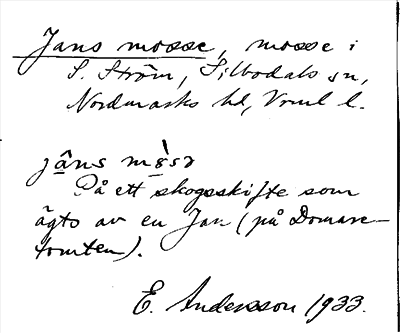 Jans mosse, mosse i
S. Ström, Silbodals sn,
Nordmarks hd, Vrml l.
jâns mòsɔ
På ett skogsskifte som
ägts av en Jan (på Domare-
tomten).
E. Andersson 1933.